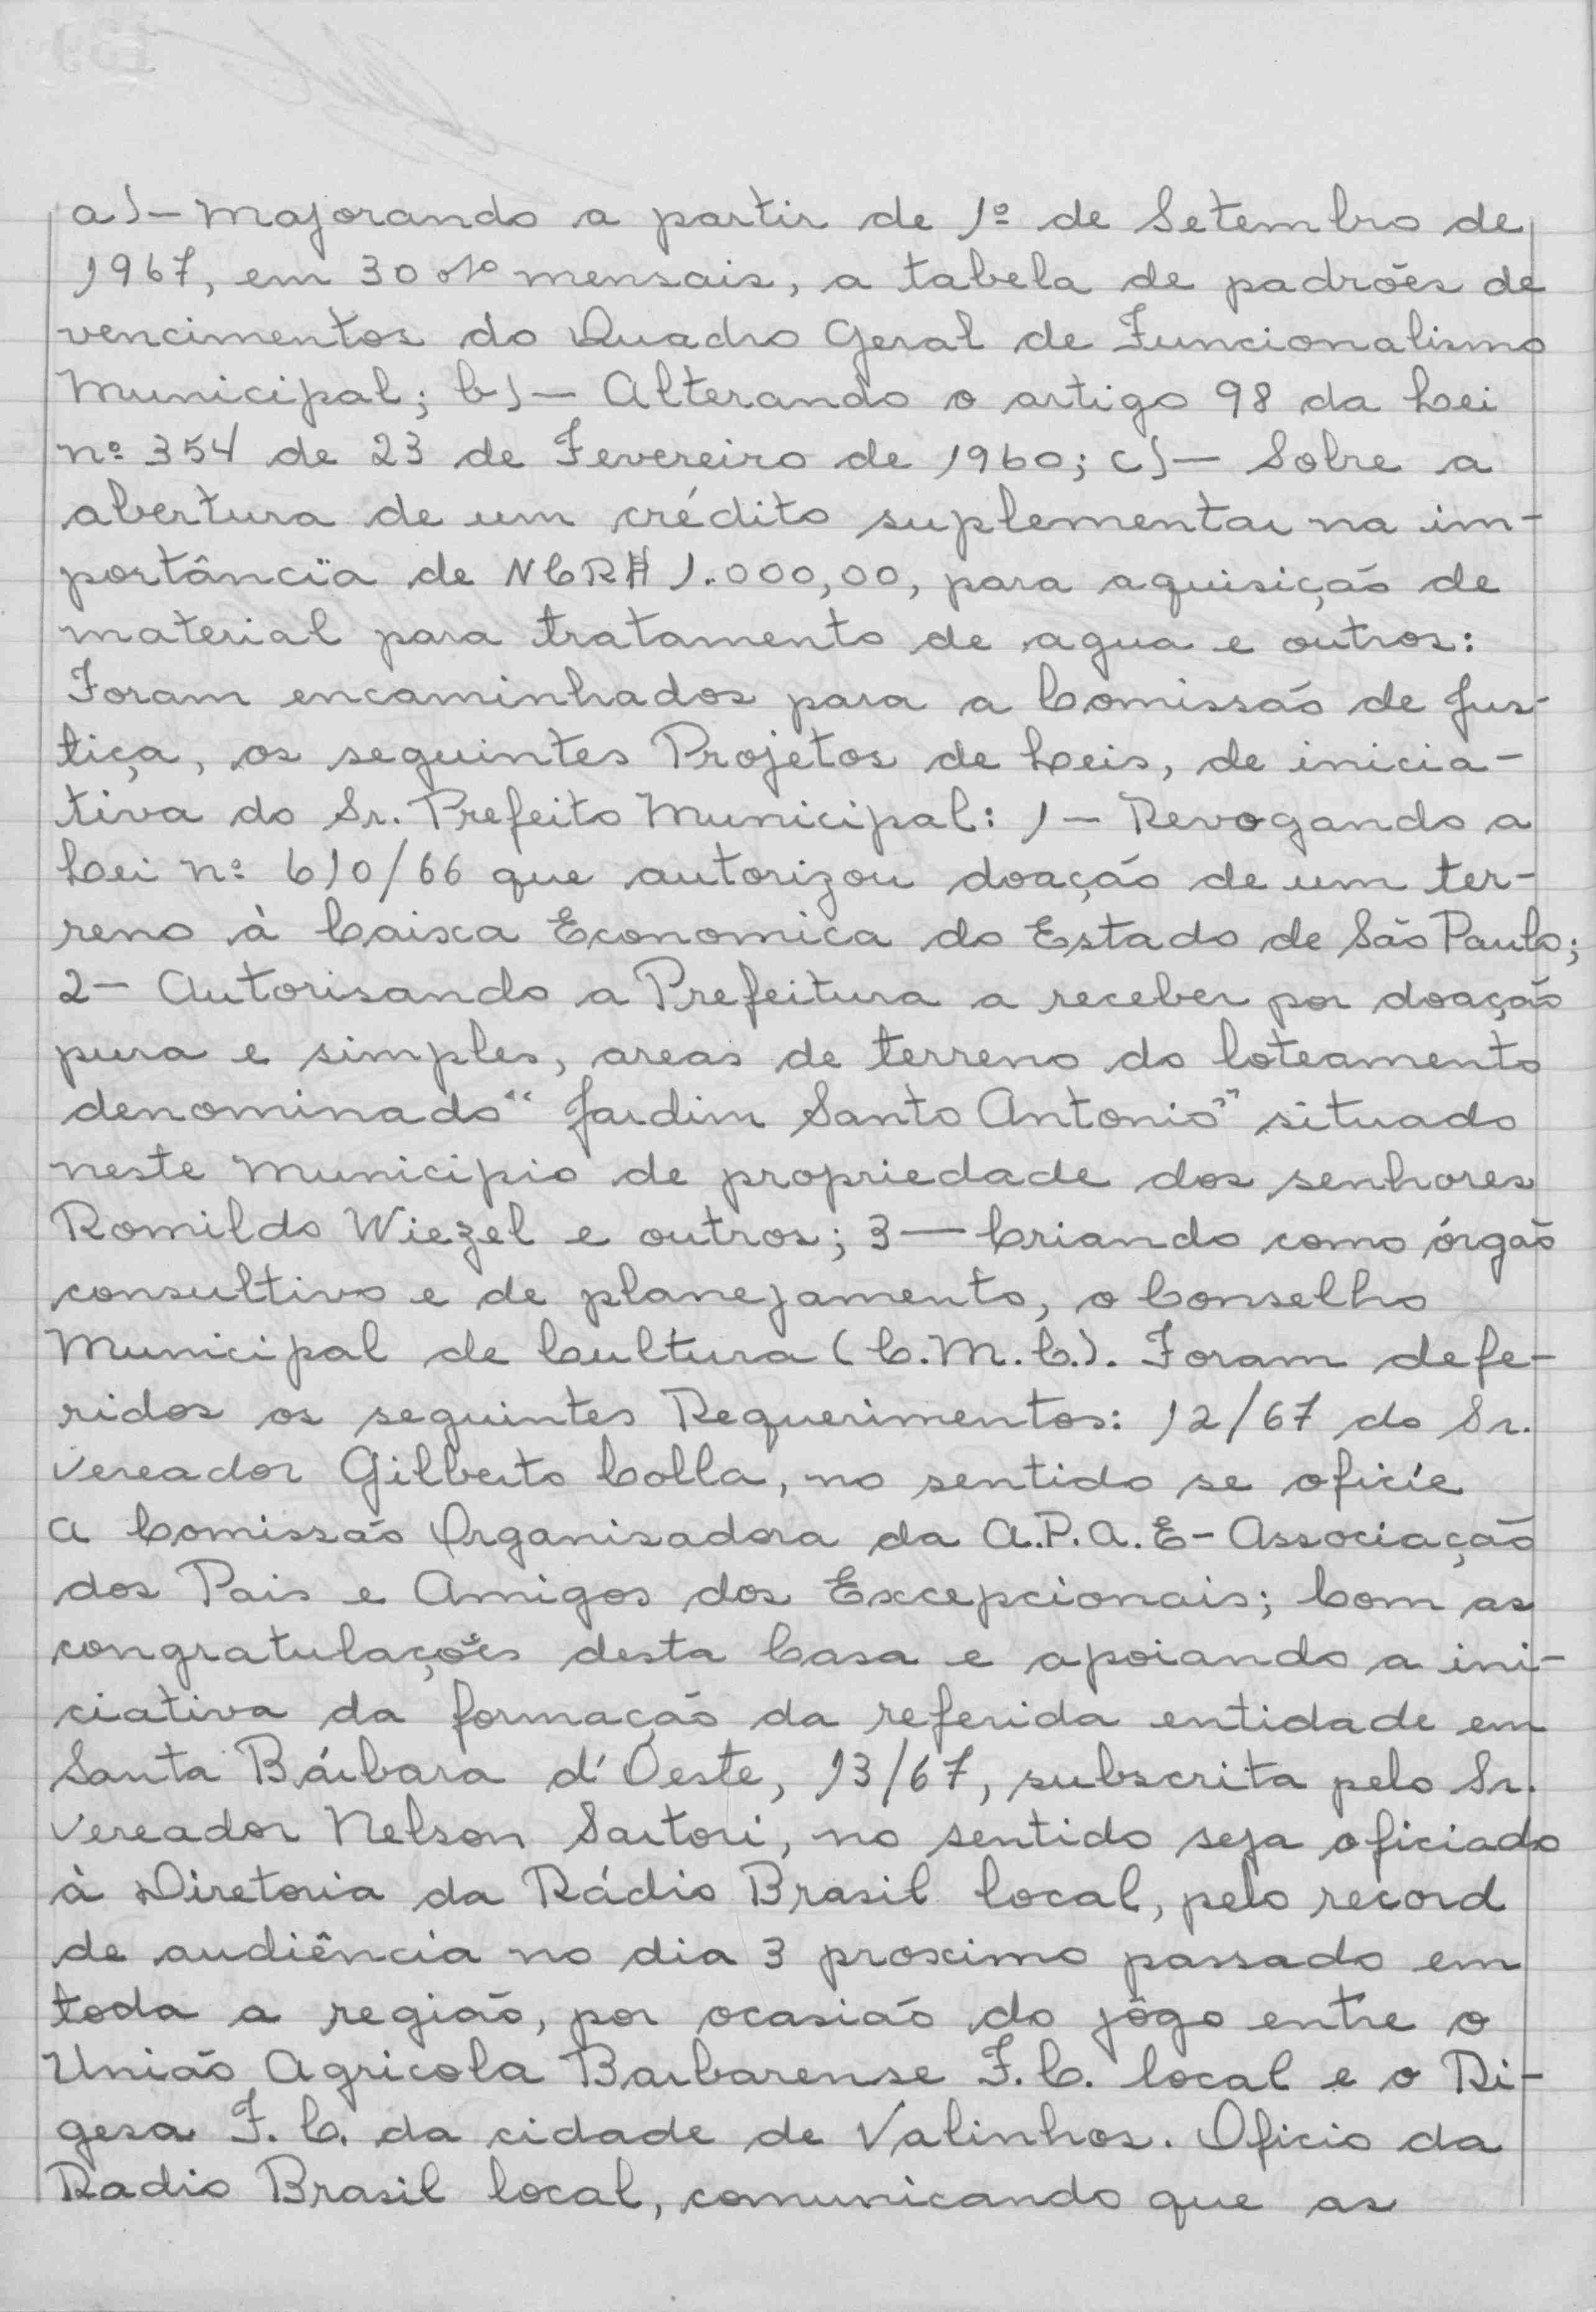 a)- Majorando a partir de 1º de Setembro de
1967, em 30 o/o mensais, a tabela de padrões de
vencimentos do Quadro Geral de Funcionalismo
Municipal; b)- Alterando o artigo 98 da Lei
nº 354 de 23 de Fevereiro de 1960; c)- Sobre a
abertura de um crédito suplementar na im-
portância de NCR$ 1.000,00, para aquisição de
material para tratamento de agua e outros:
Foram encaminhados para a Comissão de Jus-
tiça, os seguintes Projetos de Leis, de inicia-
tiva do Sr. Prefeito Municipal: 1- Revogando a
Lei nº 610/66 que autorizou doação de um ter-
reno à Caixa Economica do Estado de São Paulo;
2- Autorisando a Prefeitura a receber por doação
pura e simples, areas de terreno do loteamento
denominado "Jardim Santo Antonio" situado
neste Municipio de propriedade dos senhores
Romildo Wiezel e outros; 3- Criando como órgão
consultivo e de planejamento, o Conselho
Municipal de Cultura (C.M.C.). Foram defe-
ridos os seguintes Requerimentos: 12/67 do Sr.
Vereador Gilberto Colla, no sentido se oficíe
a Comissão Organisadora da A.P.A.E- Associação
dos Pais e Amigos dos Excepcionais; Com as
congratulações desta Casa e apoiando a ini-
ciativa da formação da referida entidade em
Santa Bárbara d'Oeste, 13/67, subscrita pelo Sr.
Vereador Nelson Sartori, no sentido seja oficiado
à Diretoria da Rádio Brasil local, pelo record
de audiência no dia 3 proximo passado em
toda a região, por ocasião do jôgo entre o
União Agricola Barbarense F.C. local e o Ri-
gesa F.C. da cidade de Valinhos. Oficio da
Radio Brasil local, comunicando que as